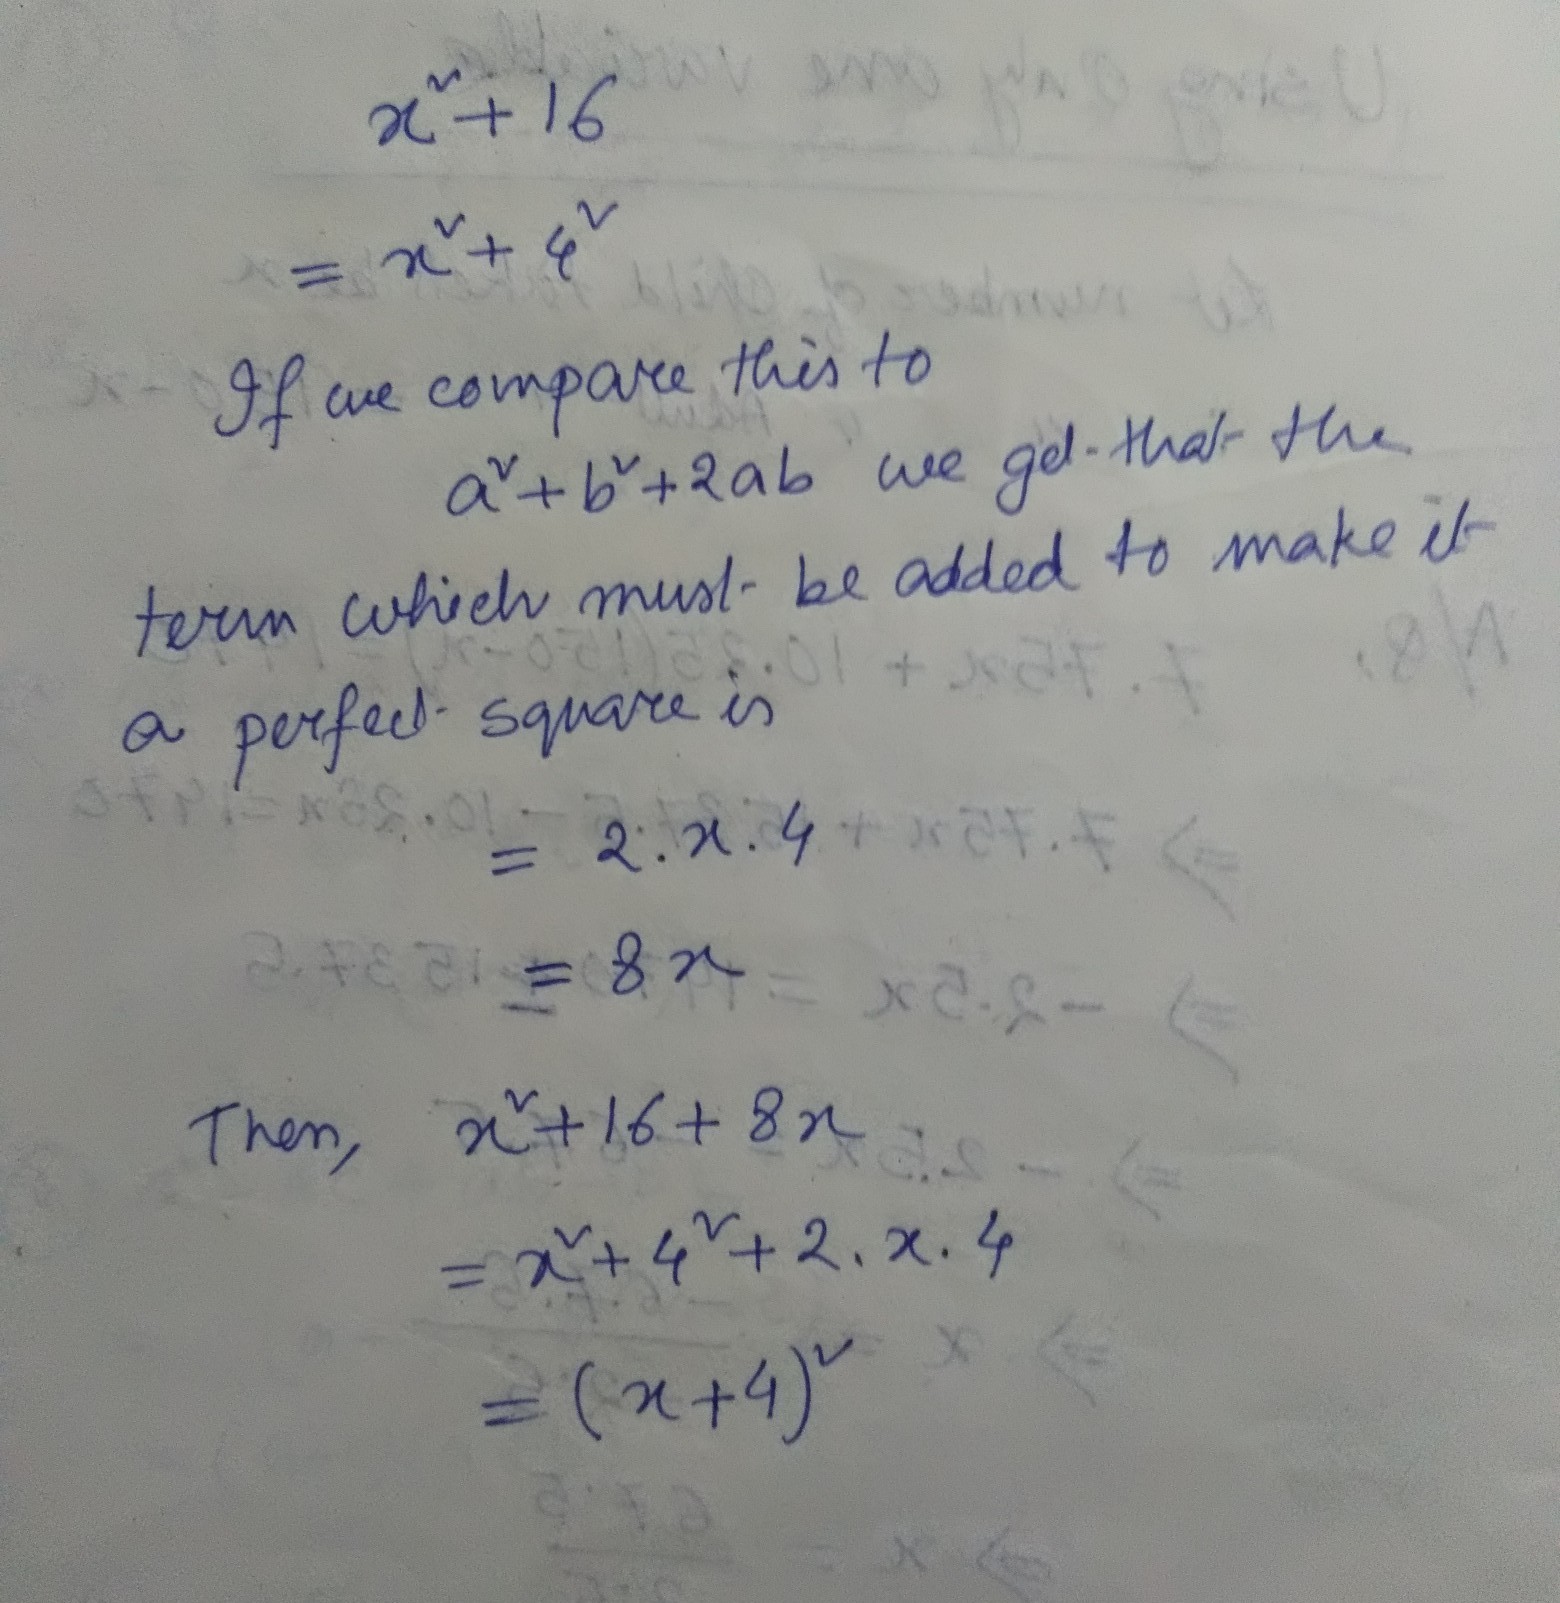 x² + 16
= x² + 4²
If we compare this to
a² + b² + 2ab we get that the
term which must be added to make it
a perfect square is
= 2 . x . 4
= 8x
Then, x² + 16 + 8x
= x² + 4² + 2 . x . 4
= (x + 4)²